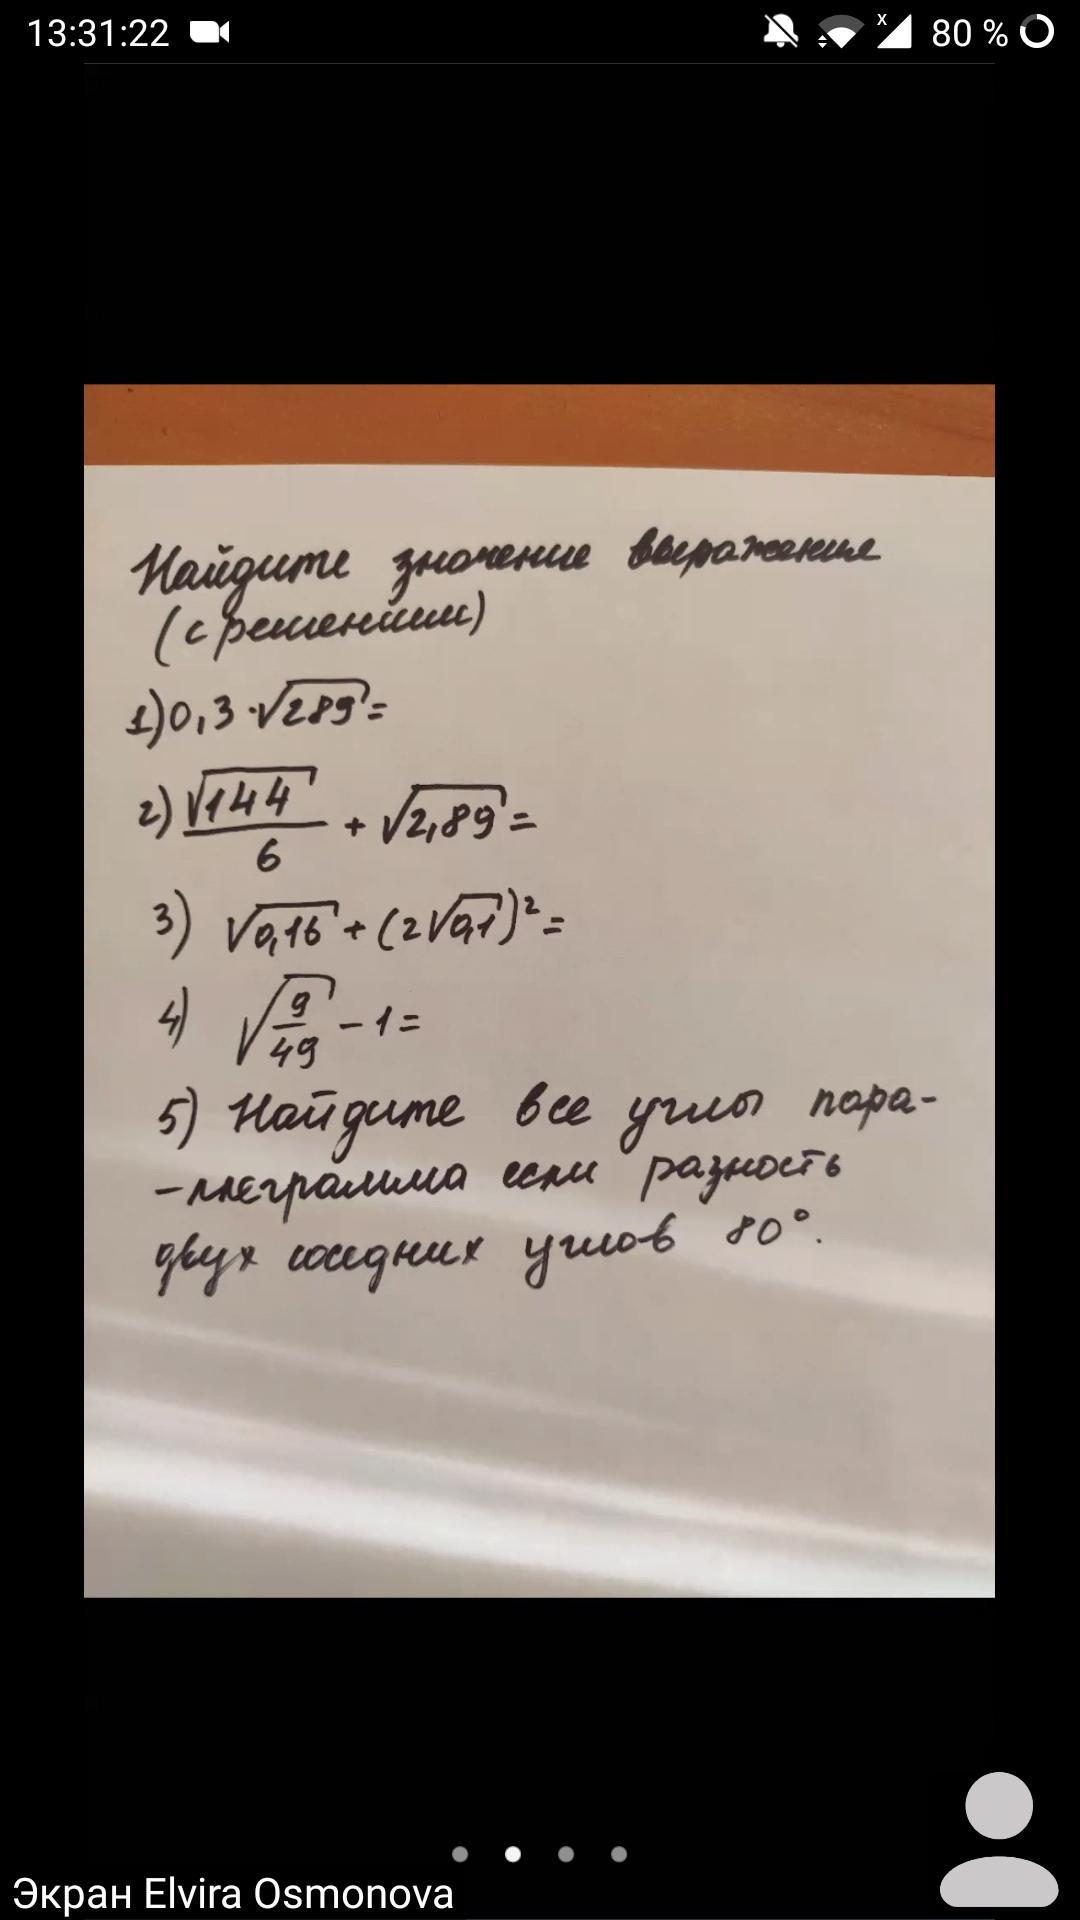 13:31:22 80 %
Найдите значение выражения
(с решением)
1) 0,3 · √289 =
2) √144/6 + √2,89 =
3) √0,16 + (2√0,1)² =
4) √9/49 - 1 =
5) Найдите все углы пара-
-ллеграмма если разность
двух соседних углов 80°.
Экран Elvira Osmonova